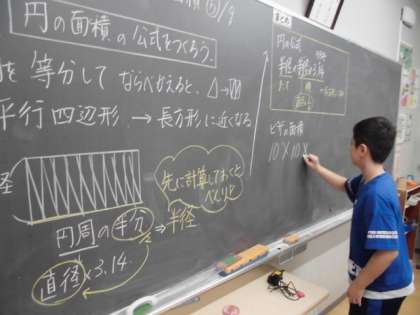 円の面積 ⑤/9
円の面積の公式をつくろう.
を等分して ならべかえると、
平行四辺形. → 長方形に近くなる
径
円周の半分
⇒ 半径
直径×3.14.
先に計算しておくと
べんりだ
まとめ
円の公式
ピザの面積
10×10×